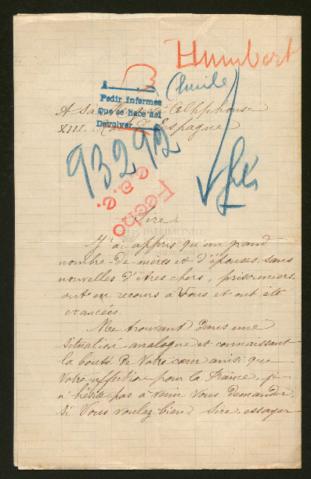 Humbert
Emile
Pedir informes
que se hace así
Devolver
A sa Majesté Alphonse
XIII. Roi d'Espagne
93292
Fecho
e.e.e.
Sire
J'ai appris qu'un grand
nombre de mères et d'épouses, sans
nouvelles d'êtres chers, prisonniers
ont eu recours à Vous et ont été
exaucées.
Me trouvant dans une
situation analogue et connaissant
la bonté de Votre cœur ainsi que
Votre affection pour la France, je
n'hésite pas à venir Vous demander
si Vous voulez bien Sire, essayer